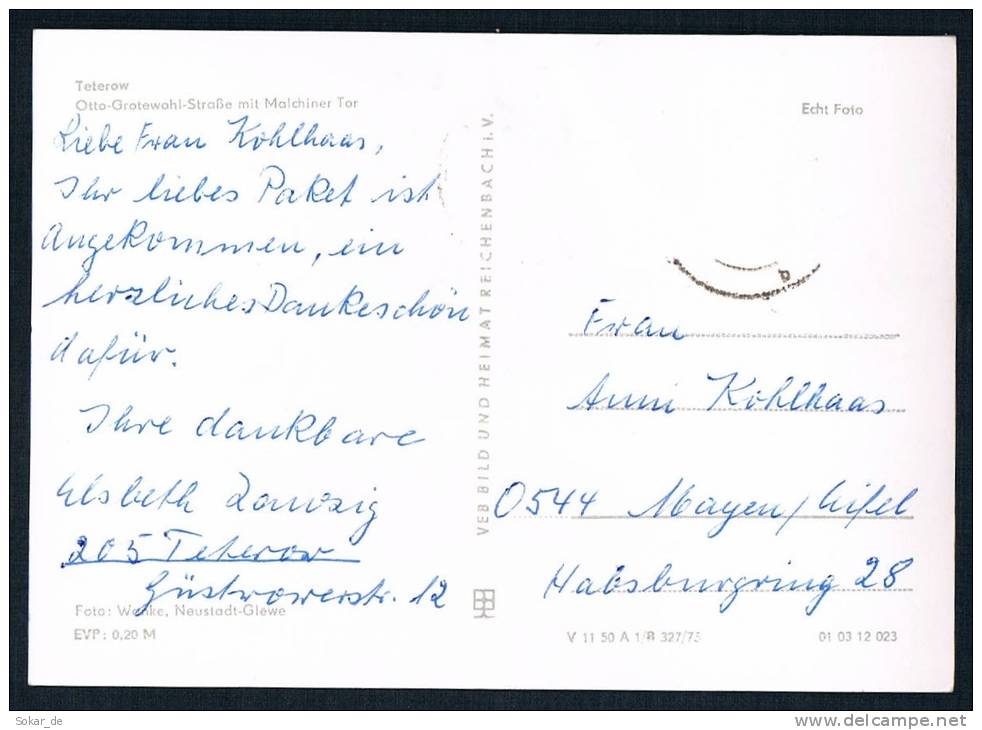 Teterow
Otto-Grotewohl-Straße mit Malchiner Tor
Liebe Frau Kohlhaas,
Ihr liebes Paket ist
angekommen, ein
herzliches Dankeschön
dafür.
Ihre dankbare
Elsbeth Danzig
205 Teterow
Güstrowerstr. 12
Foto: Wenke, Neustadt-Glewe
EVP: 0,20 M
VEB BILD UND HEIMAT REICHENBACH i. V.
Echt Foto
Frau
Anni Kohlhaas
0544 Mayen/Eifel
Habsburgring 28
V 11 50 A 1/B 327/75
01 03 12 023
Sokar_de
www.delcampe.net